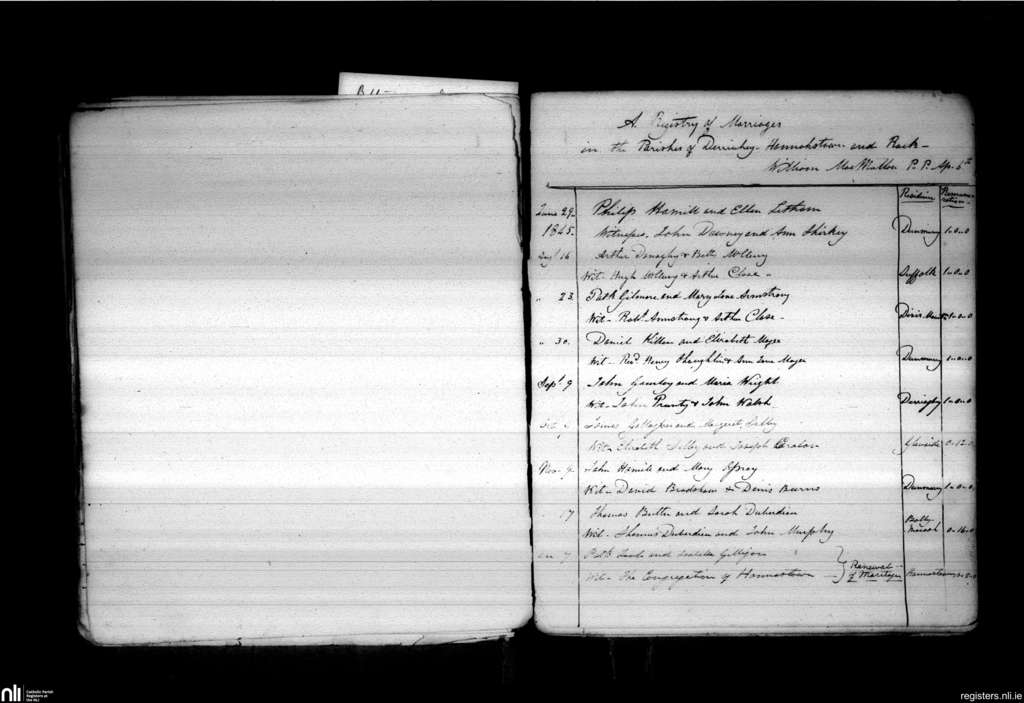 A Registry of Marriages
in the Parishes of Derriaghy Hannahstown and Rock
William MacMullan P. P. Ap. 5th
Residence Remuneration
June 29. Philip Hamill and Ellen
1845. Witnesses, John Dawney and Ann Shirkey Dunmurry 1-0-0
Augt 16 Arthur Donaghy & Betty McClurg
Wit- Hugh McClurg & Arthur Close Suffolk 1-0-0
" 23. Patk Gilmore and Mary Jane Armstrong
Wit- Robt. Armstrong & Arthur Close 1-0-0
" 30. Daniel Killen and Elizabeth Mayes
Wit- Revd. Henry & Ann Jane Mayes Dunmurry 1-0-0
Sept 9 John and Maria Wright
Wit- John Prunty & John Walsh Derriaghy 1-0-0
James Gallagher and Margaret
Wit- Elizabeth and Joseph 0-12-0
Nov. 9 John Hamill and Mary
Wit- David Bradshaw & Denis Burns Dunmurry 1-0-0
17 Thomas Butler and Sarah Duberdieu
Wit- Thomas Duberdieu and John Murphy 0-16-0
Patk and Gilligan
Wit- The Congregation of Hannastown Renewal of Marriage Hannastown
nli
Catholic Parish
Registers at
the NLI
registers.nli.ie